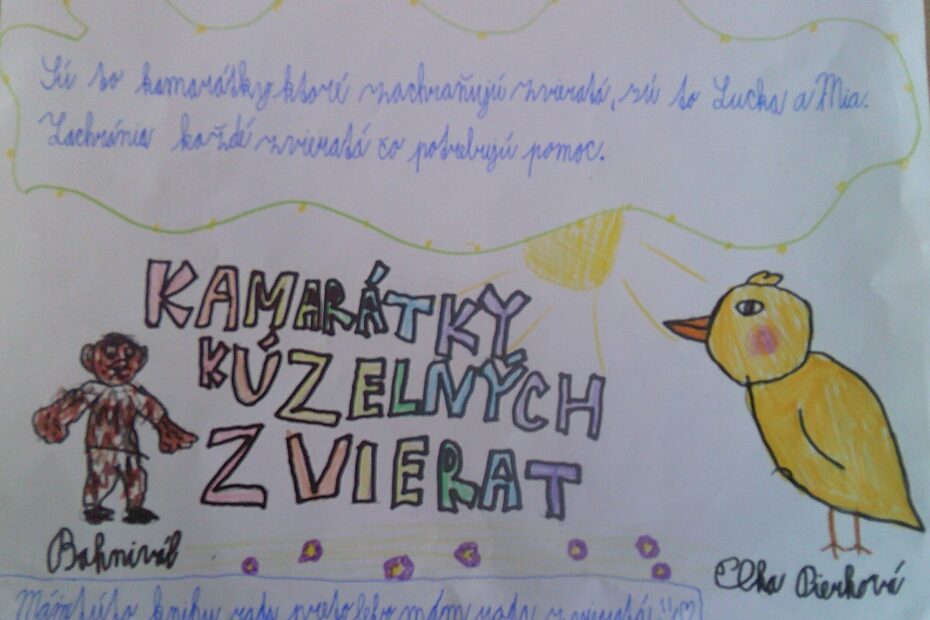 Sú to kamarátky ktoré zachraňujú zvieratá, sú to Lucka a Mia.
Zachránia každé zvieratá čo potrebujú pomoc.
KAMARÁTKY
KÚZELNÝCH
ZVIERAT
Bahnivál
Elka Pierková
Mám túto knihu rada pretožebo mám rada zvieratá!